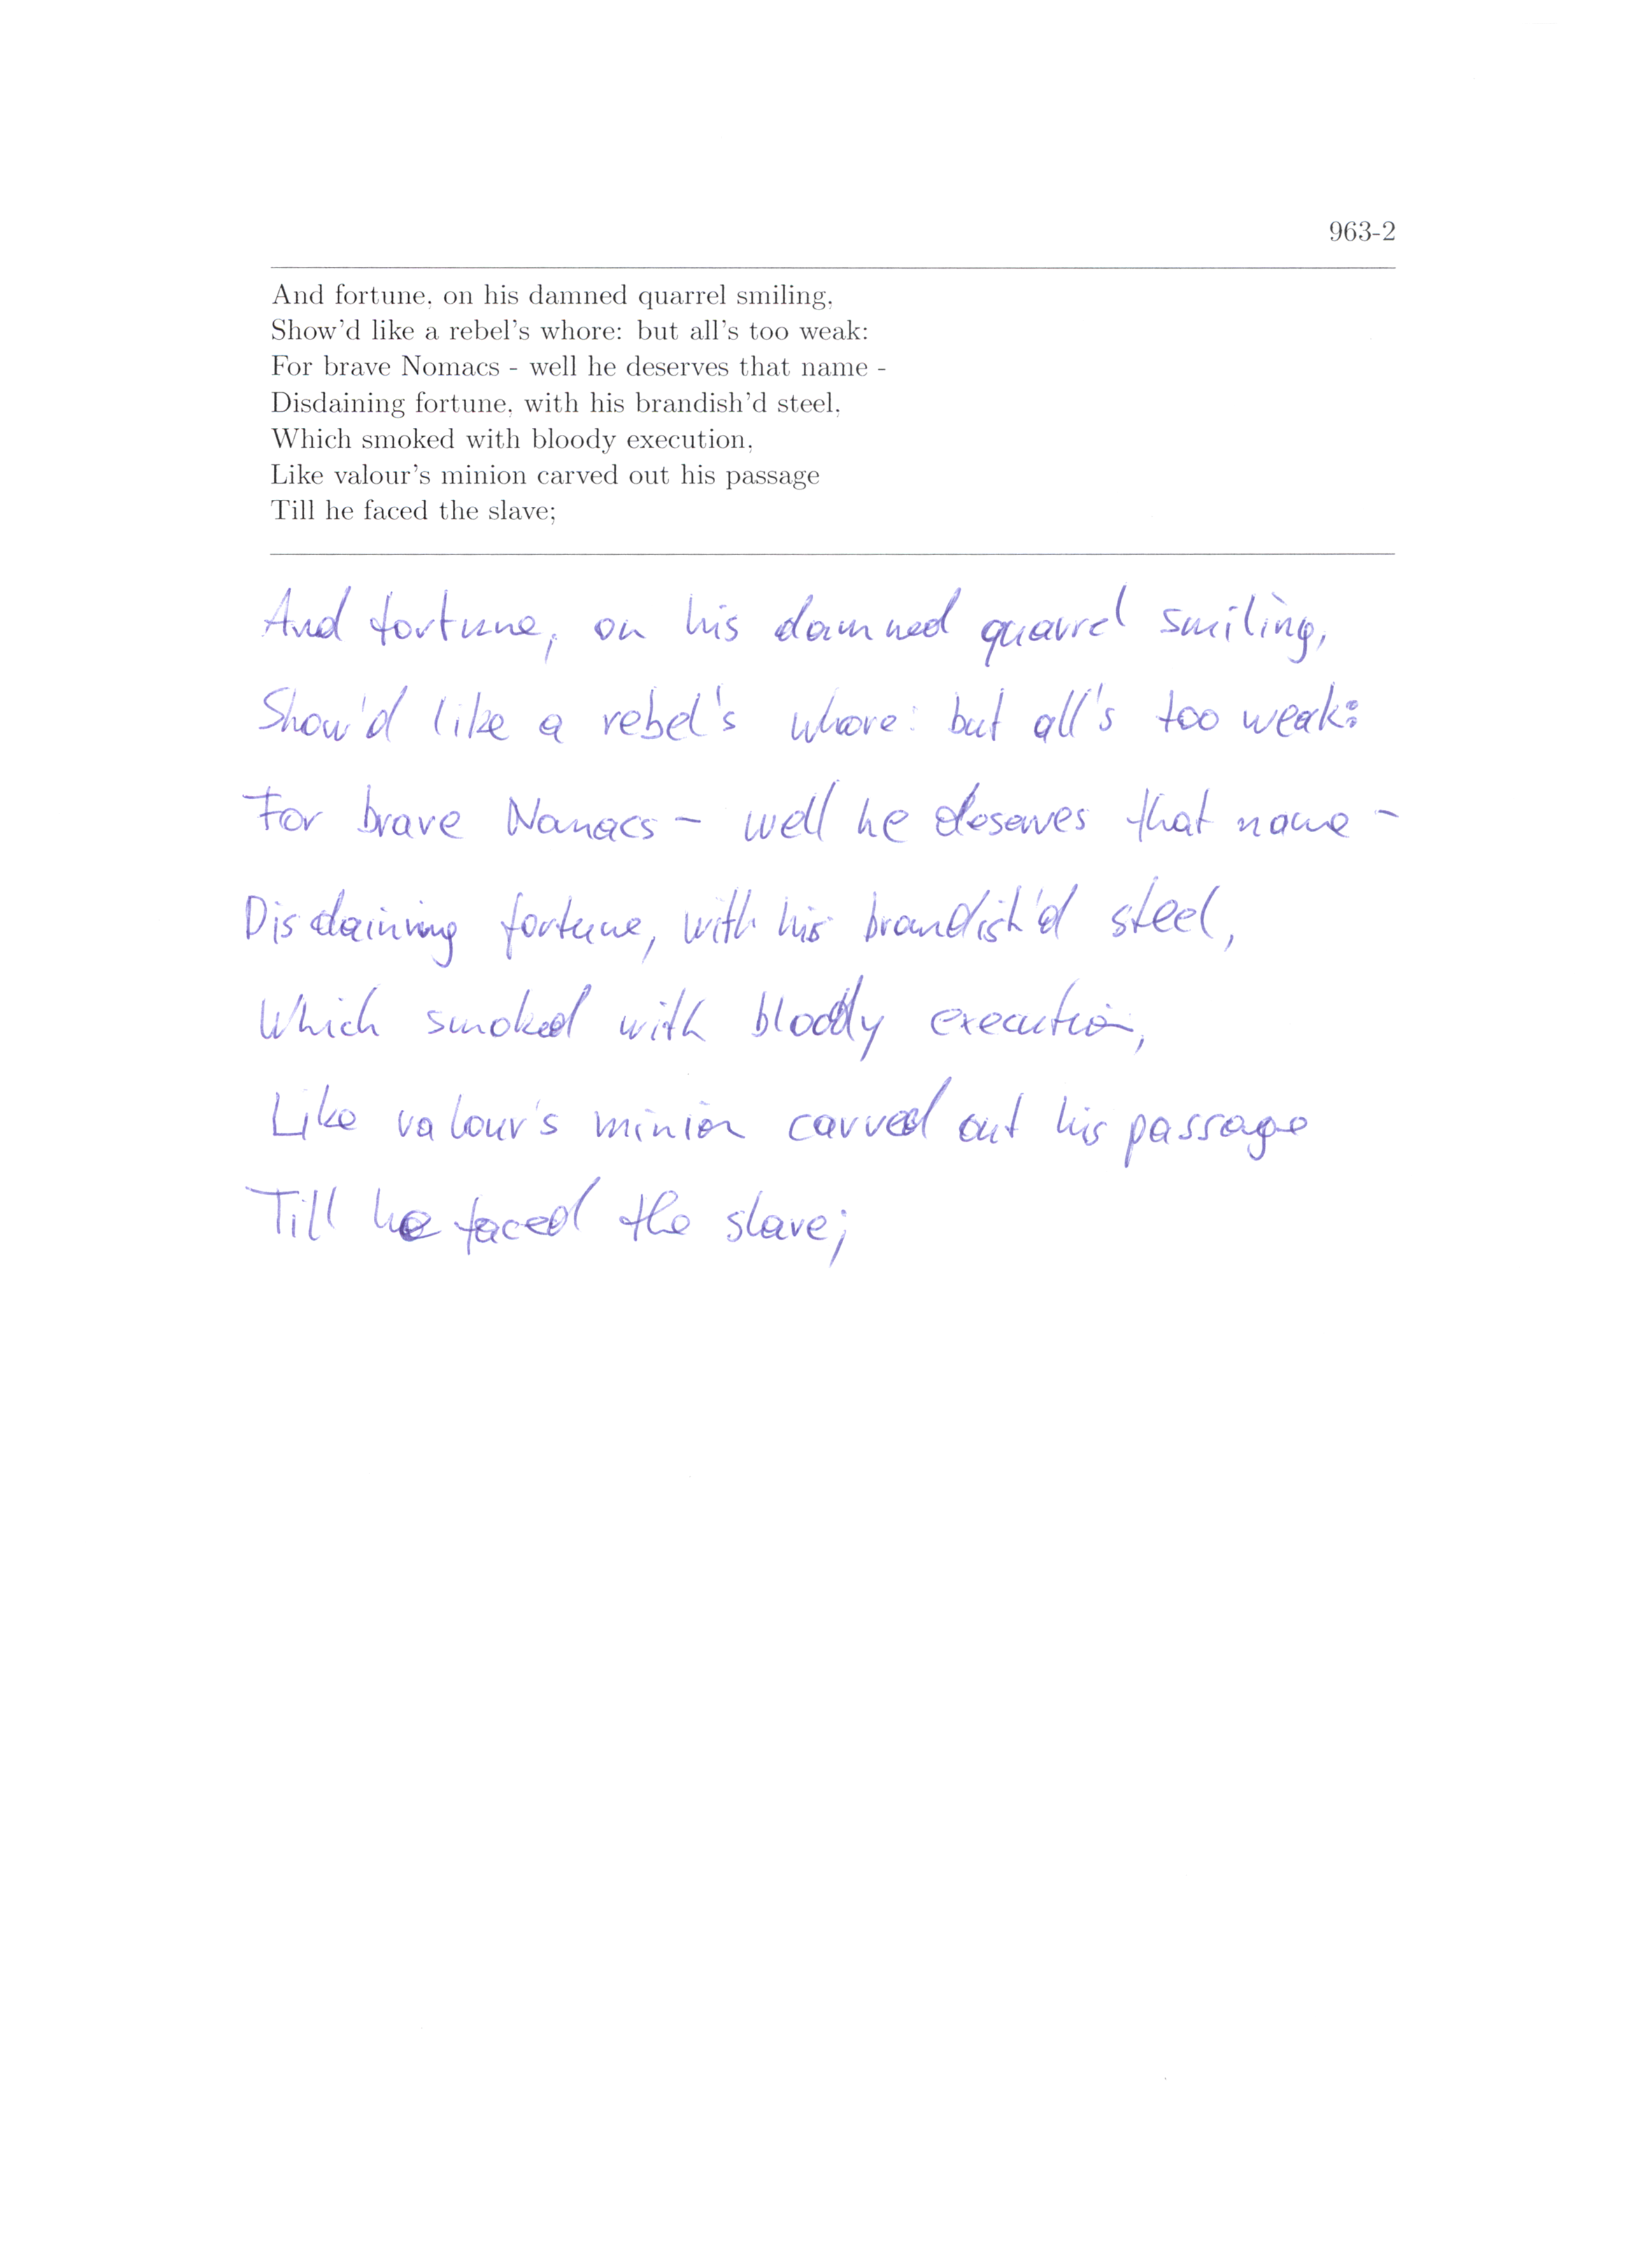 963-2
And fortune, on his damned quarrel smiling,
Show'd like a rebel's whore: but all's too weak:
For brave Nomacs - well he deserves that name -
Disdaining fortune, with his brandish'd steel,
Which smoked with bloody execution,
Like valour's minion carved out his passage
Till he faced the slave;
And fortune, on his damned quarrel smiling,
Show'd like a rebel's whore: but all's too weak:
For brave Nomacs - well he deserves that name -
Disdaining fortune, with his brandish'd steel,
Which smoked with bloody execution,
Like valour's minion carved out his passage
Till he faced the slave;